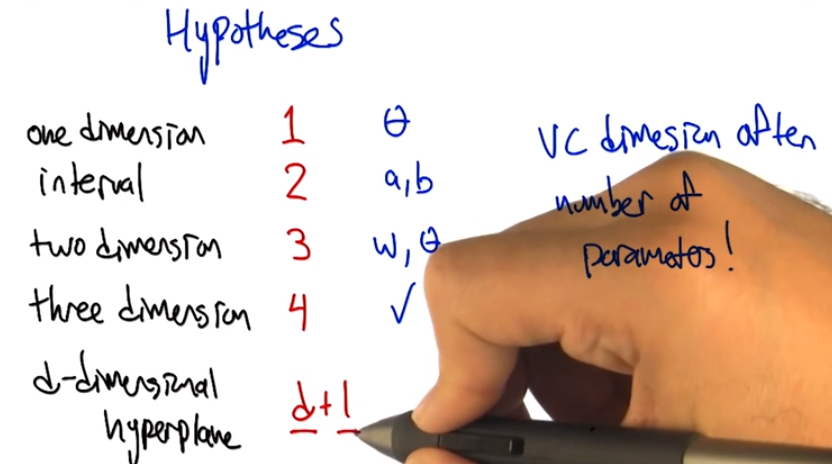 Hypotheses
one dimension 1 θ
interval 2 a,b
two dimension 3 w, θ
three dimension 4 ✓
d-dimensional
hyperplane d+1
VC dimesion often
number of
parametos!